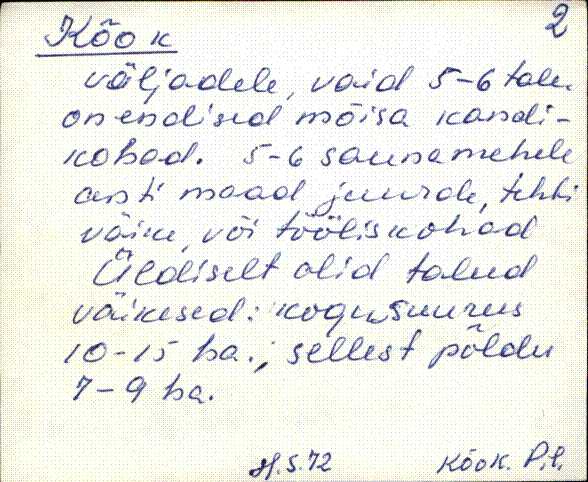 2
Kõok
väljadele, vaid 5-6 talu
on endised mõisa kandi-
kohad. 5-6 saunamehele
anti maad juurde, tehti
väike, või tööliskohad
Üldiselt olid talud
väikesed: kogu suurus
10-15 ha., sellest põldu
7-9 ha.
H.S.72 Kõok. P.l.